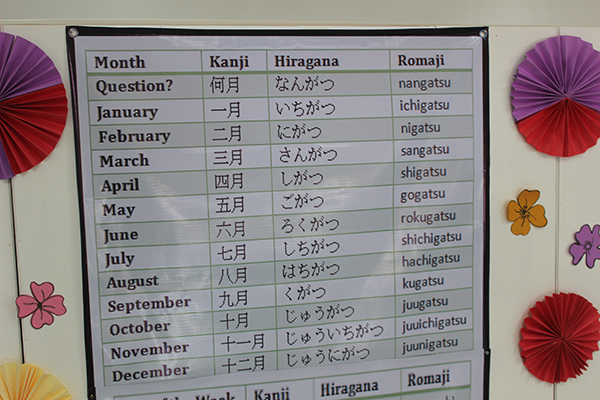 Month Kanji Hiragana Romaji
Question? 何月 なんがつ nangatsu
January 一月 いちがつ ichigatsu
February 二月 にがつ nigatsu
March 三月 さんがつ sangatsu
April 四月 しがつ shigatsu
May 五月 ごがつ gogatsu
June 六月 ろくがつ rokugatsu
July 七月 しちがつ shichigatsu
August 八月 はちがつ hachigatsu
September 九月 くがつ kugatsu
October 十月 じゅうがつ juugatsu
November 十一月 じゅういちがつ juuichigatsu
December 十二月 じゅうにがつ juunigatsu
Week Kanji Hiragana Romaji